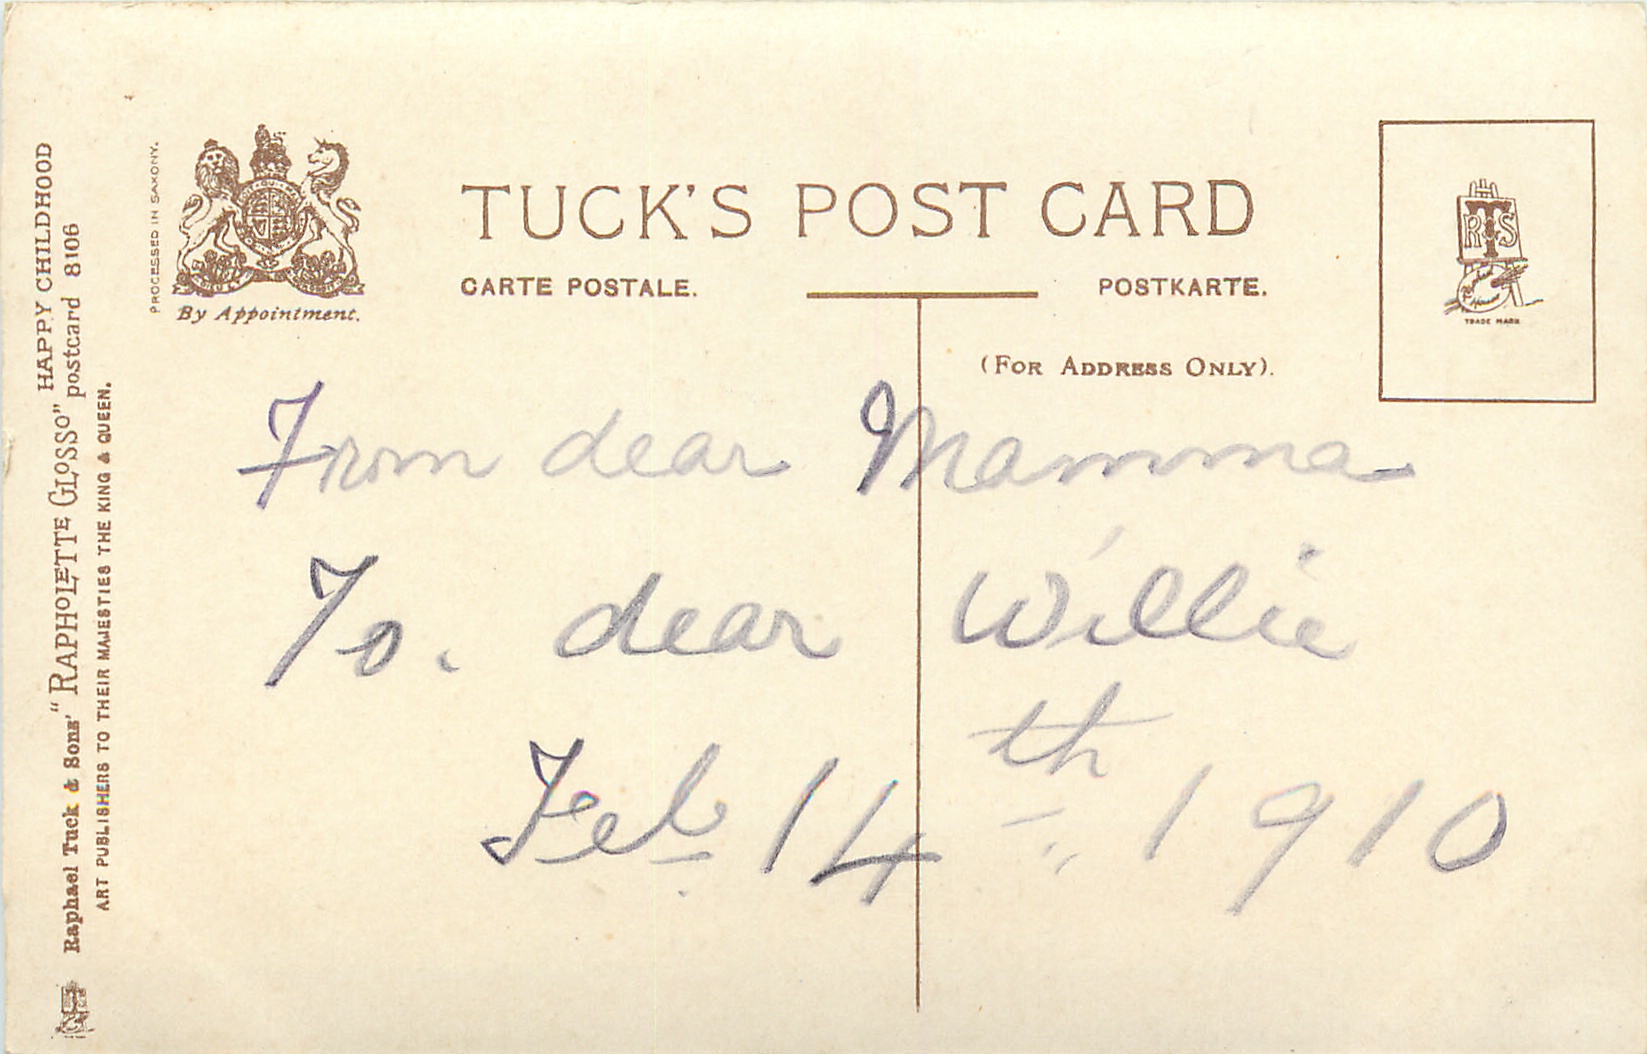 HAPPY CHILDHOOD
Raphael Tuck & Sons' "RAPHOLETTE GLOSSO" postcard 8106
ART PUBLISHERS TO THEIR MAJESTIES THE KING & QUEEN.
PROCESSED IN SAXONY.
By Appointment.
TUCK'S POST CARD
CARTE POSTALE.
POSTKARTE.
(FOR ADDRESS ONLY).
RT&S
TRADE MARK
From dear Mamma
To. dear Willie
Feb 14th 1910